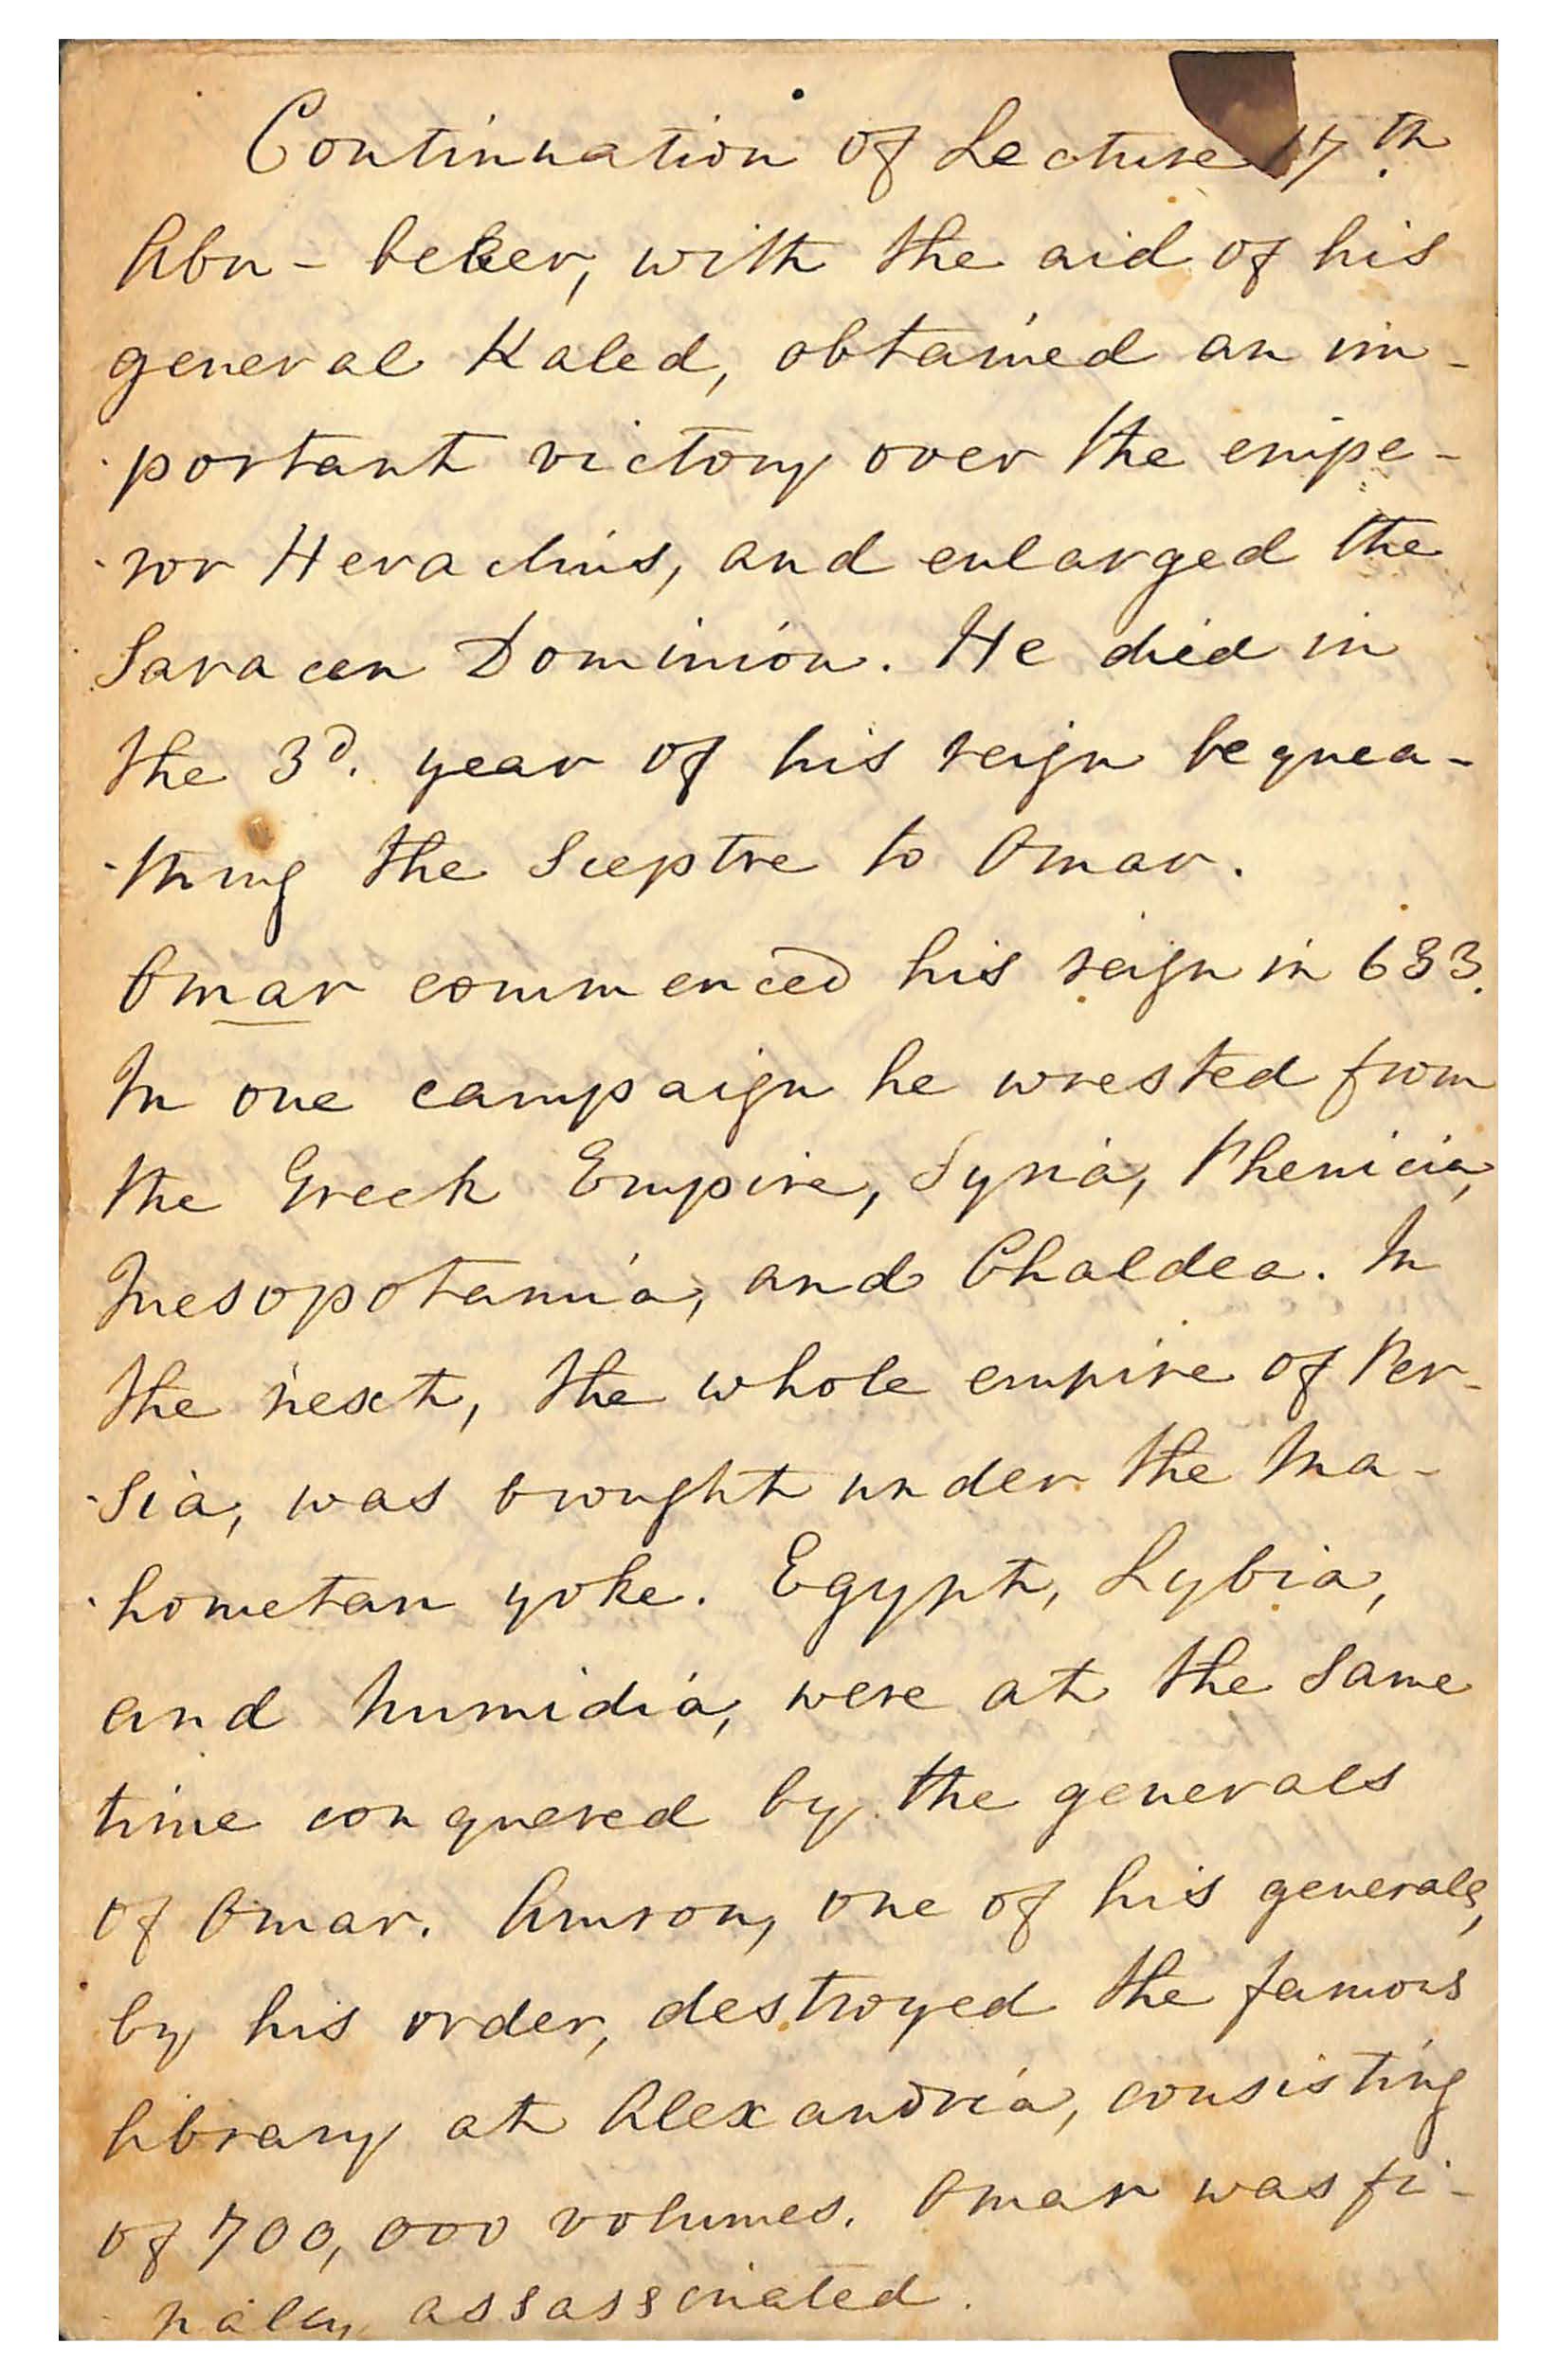 Continuation of Lecture 17th.
Abu-beker, with the aid of his
general Kaled, obtained an im-
portant victory over the empe-
ror Heraclius, and enlarged the
Saracen Dominion. He died in
the 3d. year of his reign bequea-
thing the Sceptre to Omar.
Omar commenced his reign in 633.
In one campaign he wrested from
the Greek Empire, Syria, Phenicia,
Mesopotamia, and Chaldea. In
the next, the whole empire of Per-
sia, was brought under the Ma-
hometan yoke. Egypt, Lybia,
and Numidia, were at the same
time conquered by the generals
of Omar. Amrou, one of his generals,
by his order, destroyed the famous
library at Alexandria, consisting
of 700,000 volumes. Omar was fi-
nally assassinated.